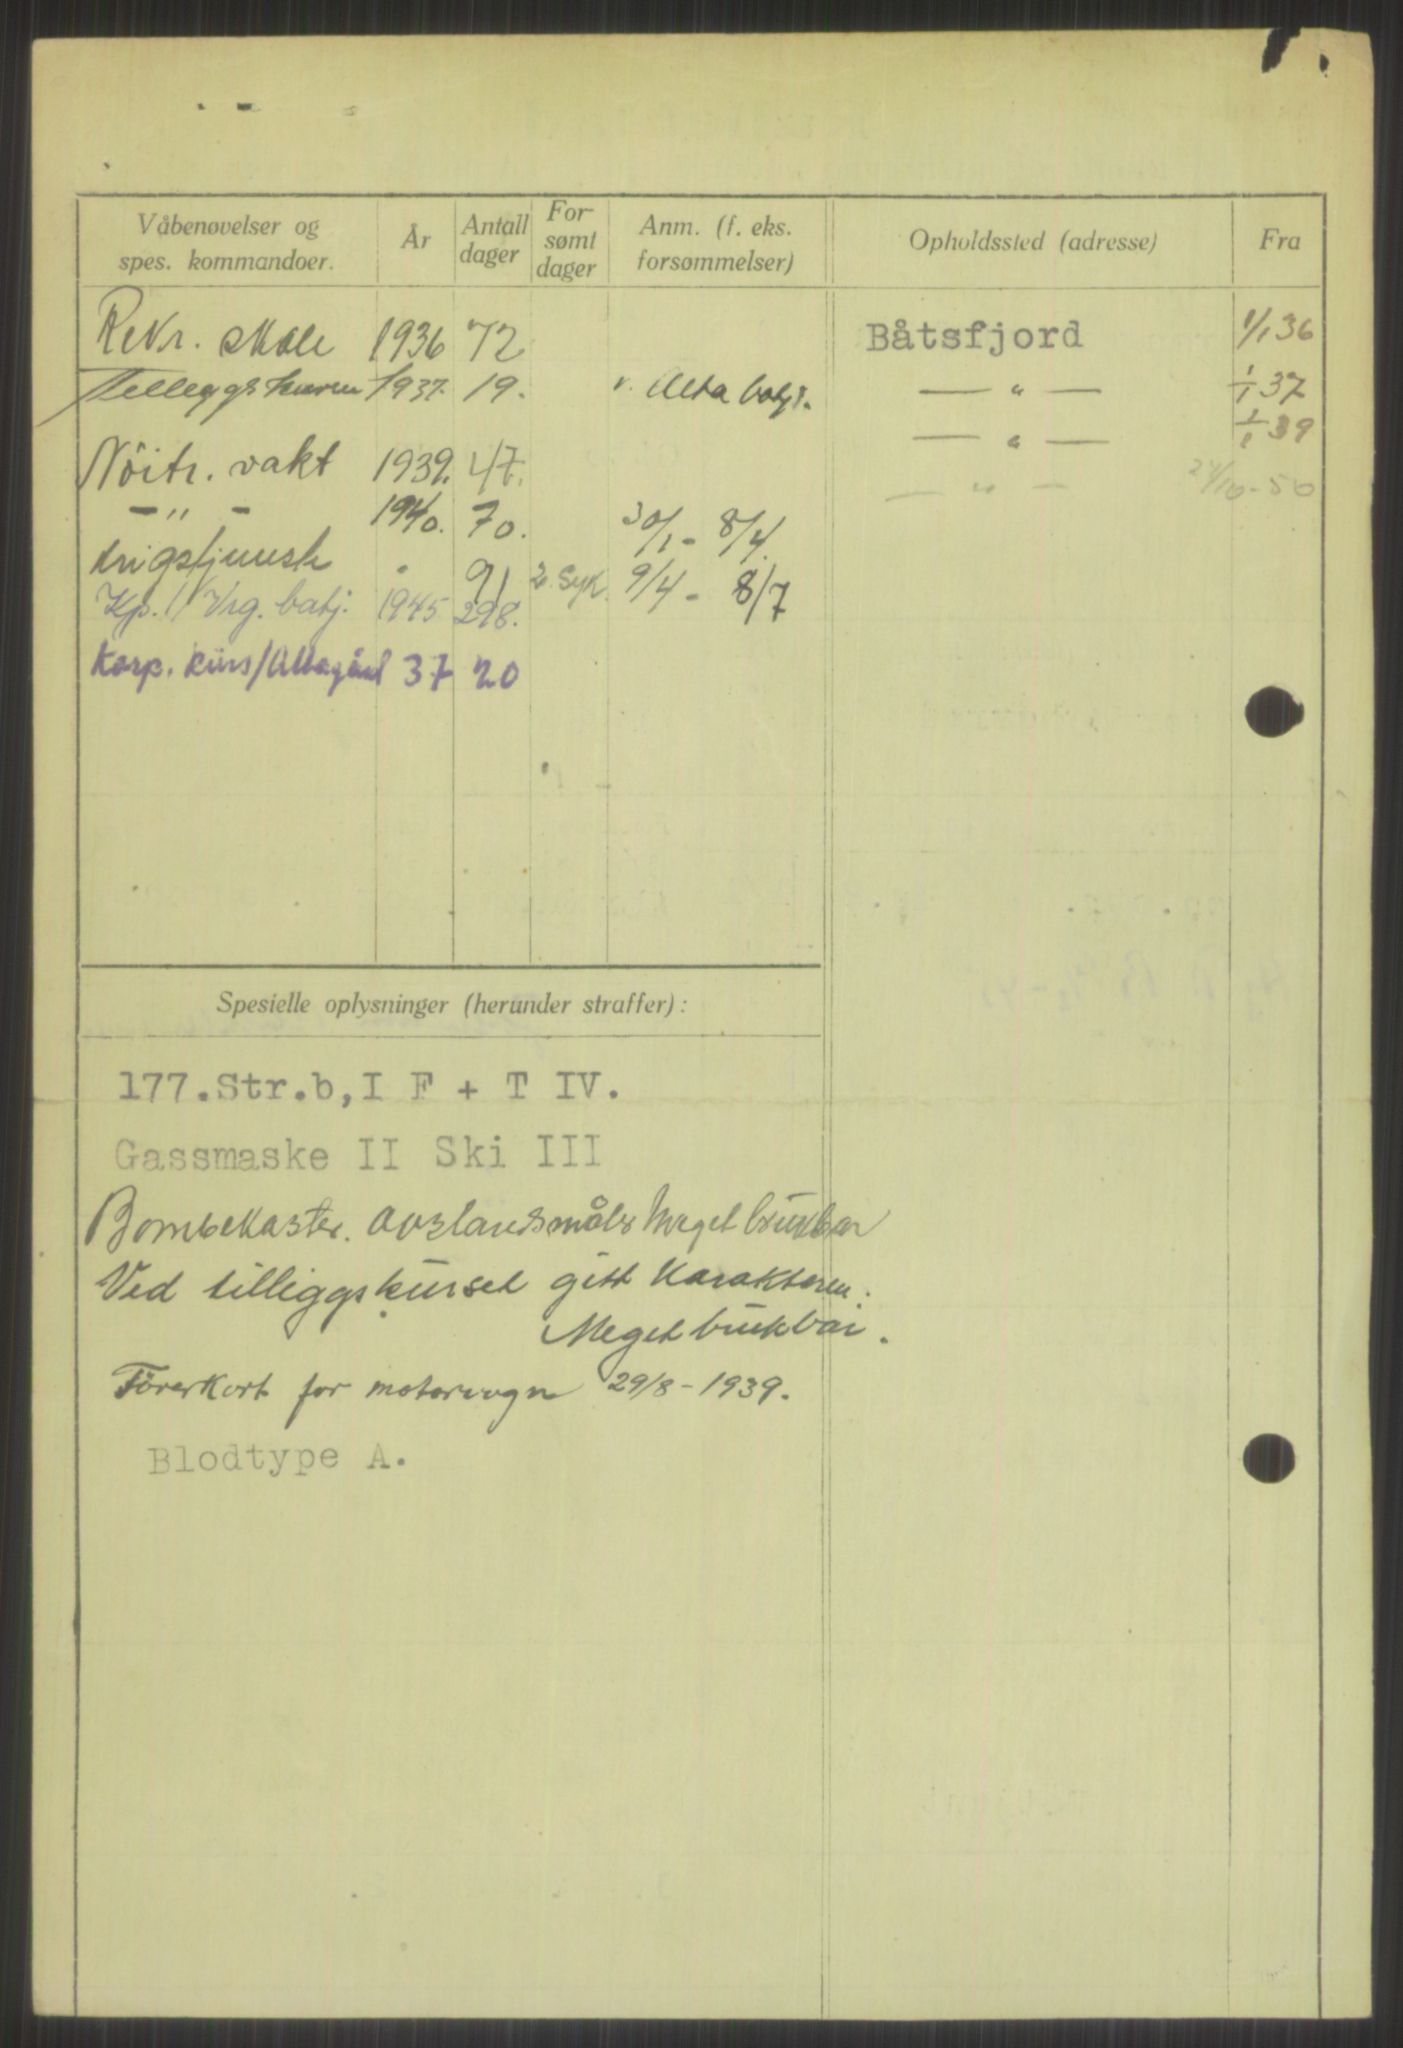 Våbenøvelser og spes. kommandoer. År Antall dager For- sømt dager Anm. (f. eks. forsømmelser) Opholdssted (adresse) Fra
Rekr. skole 1936 72 Båtsfjord 1/1 36
Tilleggskursus 1937. 19. v. Alta batj. — " — 1/1 37
— " — 1/1 39
Nöitr. vakt 1939. 47. — " — 24/10-50
— " — 1940. 70. 30/1 - 8/4.
Krigstjeneste " 91 2 Syk. 9/4 - 8/7
Kp. 1/Vrg. batj. 1945 298.
Korp. kurs/Altagård 37 20
Spesielle oplysninger (herunder straffer):
177.Str.b,I F + T IV.
Gassmaske II Ski III
Bombekaster. Avstandsmåler Meget brukbar
Ved tilleggskurset gitt karakteren:
Meget brukbar.
Förerkort for motorvogn 29/8-1939.
Blodtype A.